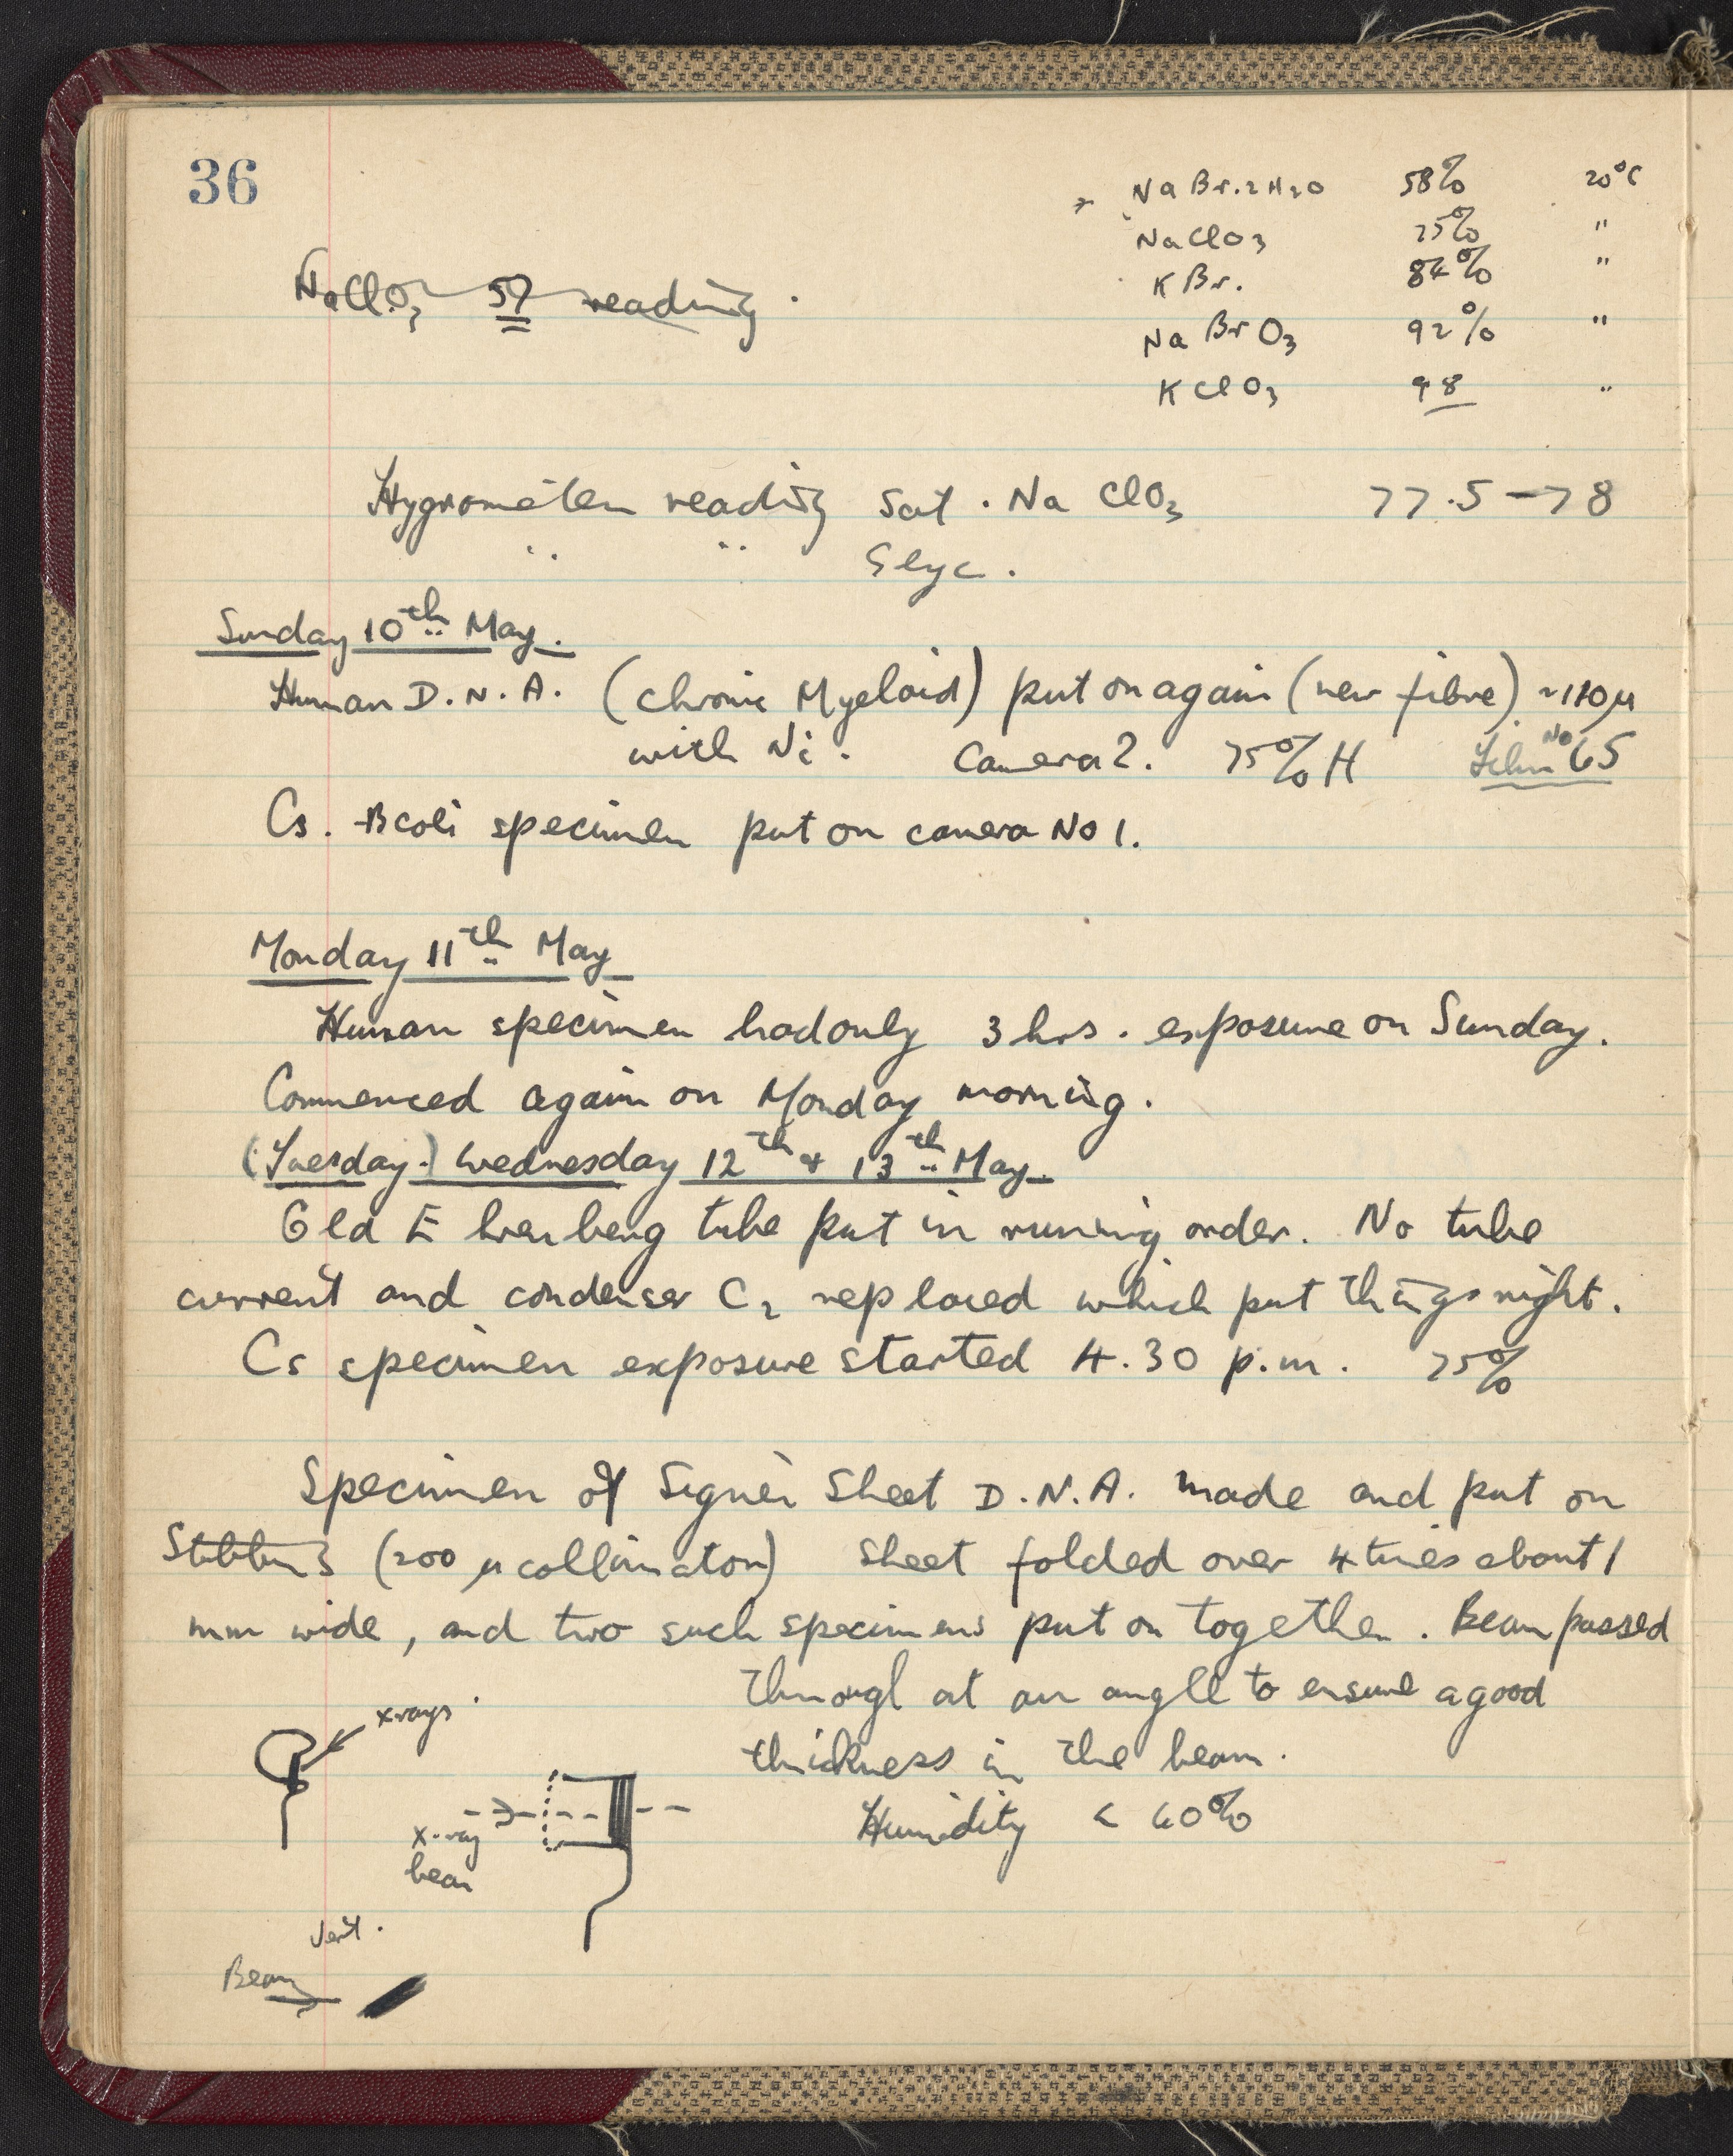 36
NaBr.2H2O 58% 20°C
NaClO3 75% "
KBr. 84% "
NaBrO3 92% "
KClO3 98 "
NaClO3 reading.
Hygrometer reading Sat. NaClO3 77.5 – 78
" " Glyc.
Sunday 10th May.
Human D.N.A. (Chronic Myeloid) put on again (new fibre) ~110μ
with Ni. Camera 2. 75% H Film No 65
Cs. Bcoli specimen put on camera No 1.
Monday 11th May
Human specimen had only 3 hrs. exposure on Sunday.
Commenced again on Monday morning.
(Tuesday.) Wednesday 12th + 13th May.
Old Ehrenberg tube put in running order. No tube
current and condenser C2 replaced which put things right.
Cs specimen exposure started 4.30 p.m. 75%
Specimen of Signer Sheet D.N.A. made and put on
(200 μ collimator) sheet folded over 4 times about 1
mm wide, and two such specimens put on together. Beam passed
through at an angle to ensure a good
thickness in the beam.
Humidity < 60%
x-rays
x-ray
beam
Vert.
Beam